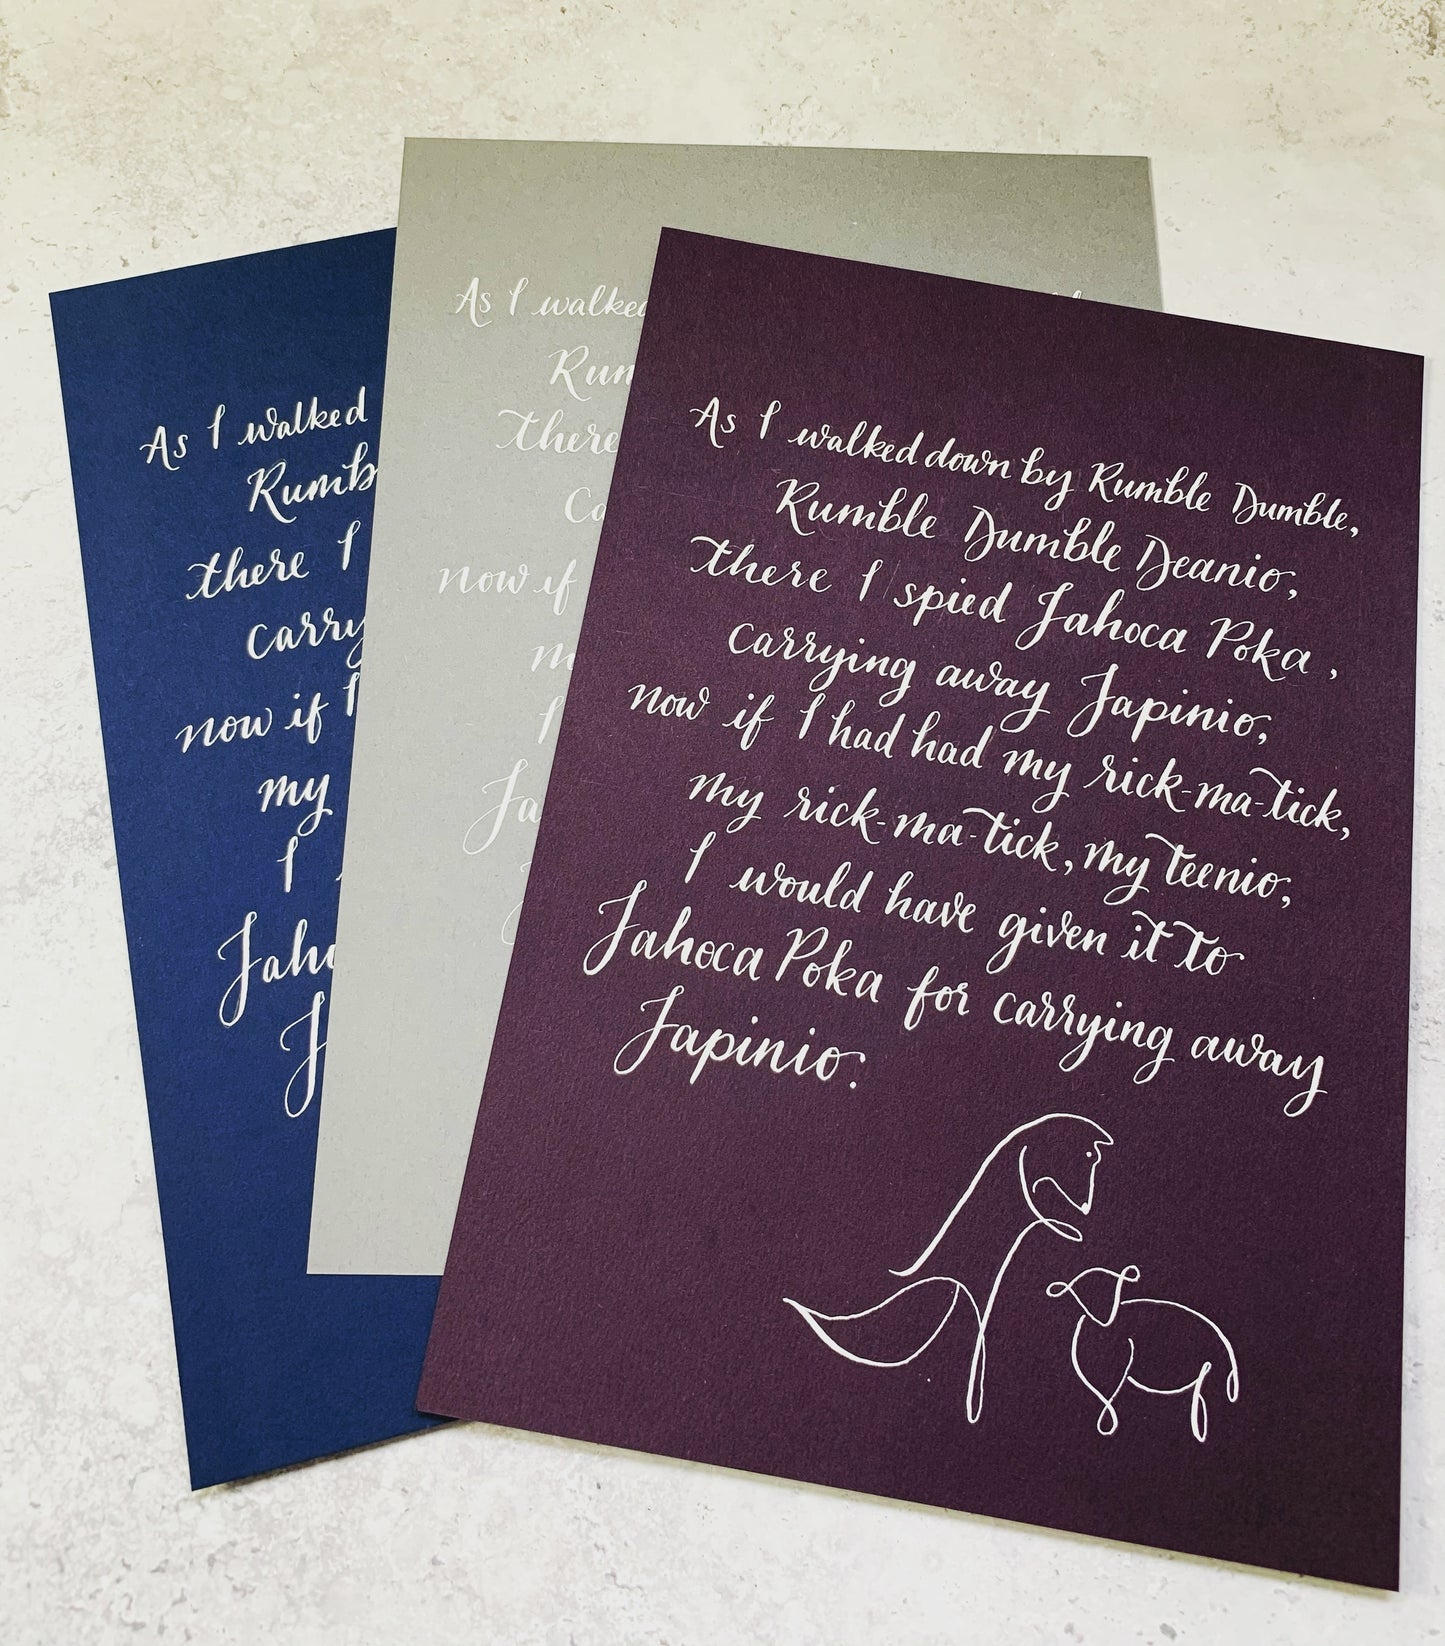 As I walked
Rumb
there I
carry
now if I
my
I
Jaho
J
As I walked
Rum
there
Ca
now if
m
I
Ja
As I walked down by Rumble Dumble,
Rumble Dumble Deanio,
there I spied Jahoca Poka,
carrying away Japinio,
now if I had had my rick-ma-tick,
my rick-ma-tick, my teenio,
I would have given it to
Jahoca Poka for carrying away
Japinio.